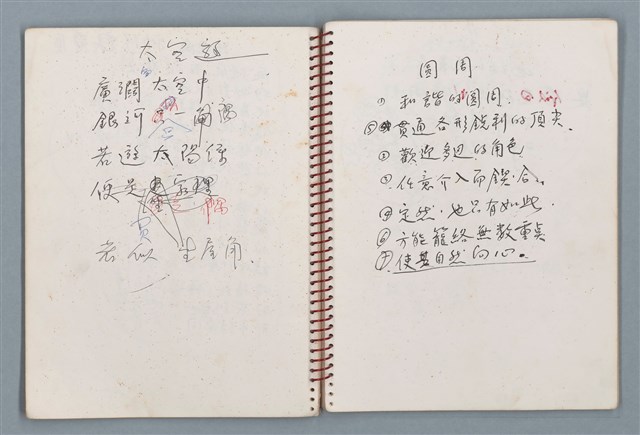 太空遊
廣濶太空中
銀河
若遊太陽係
便是
隅
若似 生屋角.
圓周
① 和諧的圓周.
⑤ 貫通各形銳利的頂尖.
② 歡迎多边的角色
③ 任意介入而鍥合.
④ 定然,也只有如此.
⑥ 方能籠絡無数重点
⑦ 使其自然向心。